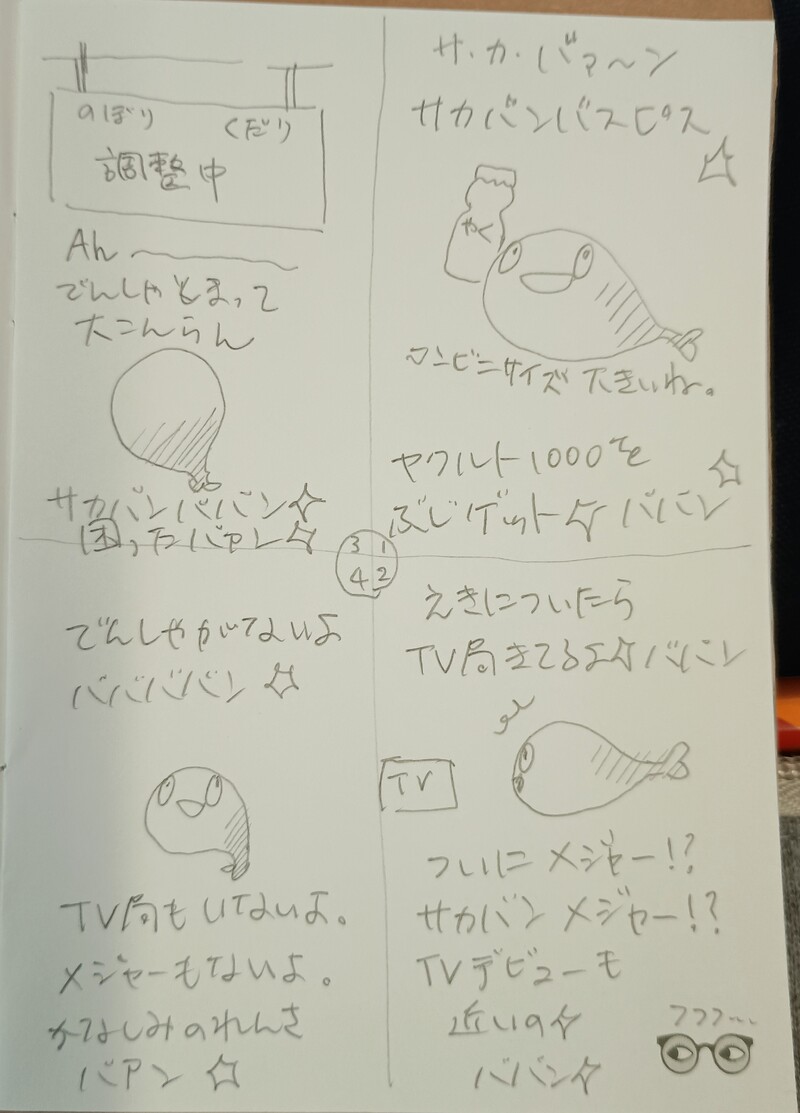 サ・カ・バァ〜ン
サカバンバスピス
☆
やく
コンビニサイズ 大きいね。
ヤクルト1000を ☆
ぶじゲット☆ ババン
えきについたら
TV局きてるよ☆ババン
TV
ついに メジャー!?
サカバン メジャー!?
TVデビューも
近いの☆
ババン☆
フフフ…
のぼり くだり
調整中
Ah
でんしゃとまって
大こんらん
サカバンババン☆
困ったバァン☆
でんしゃがでないよ
ババババン ☆
TV局もいてないよ。
メジャーもないよ。
かなしみのれんさ
バアン ☆
3 1
4 2